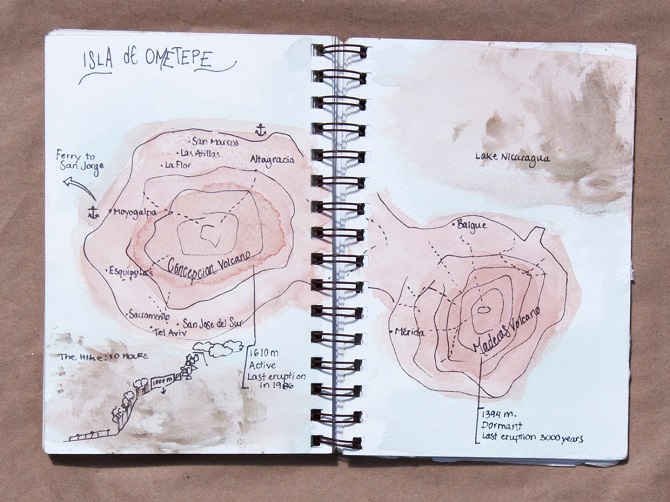 ISLA de OMETEPE
Ferry to
San Jorge
San Marcos
Las Atillas
La Flor
Altagracia
Moyogalpa
Concepcion Volcano
Esquipulas
Sacramento
San Jose del Sur
Tel Aviv
The Hike: 10 Hours
1000 m
1610 m
Active
Last eruption
in 1986
Lake Nicaragua
Balgue
Maderas Volcano
Mérida
1394 m.
Dormant
Last eruption 3000 years